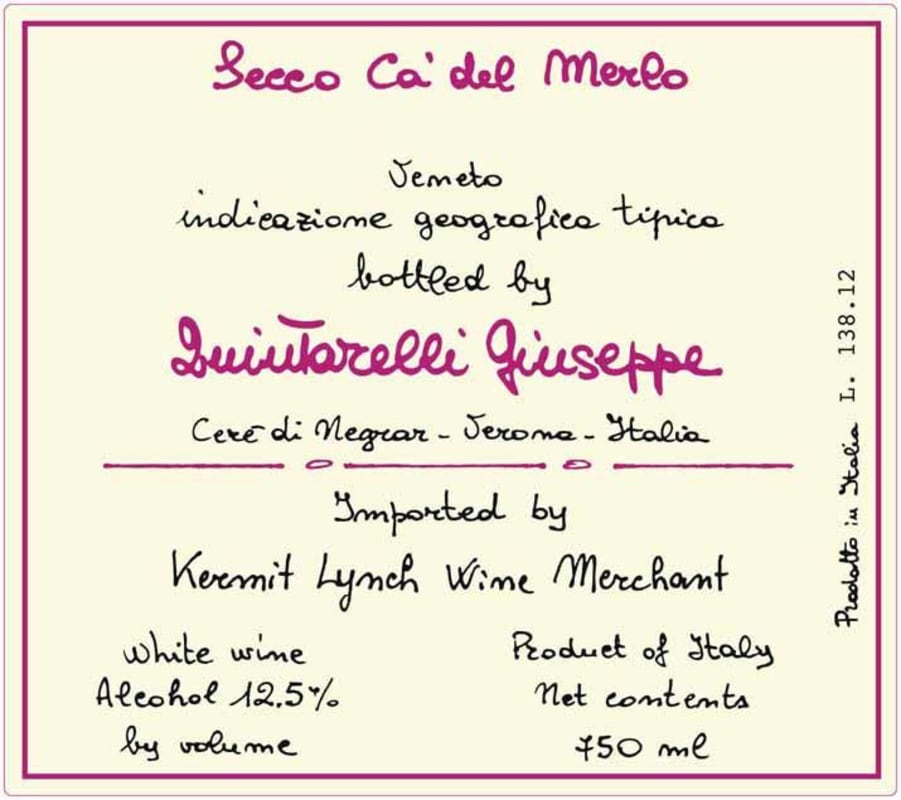 Secco Ca' del Merlo
Veneto
indicazione geografica tipica
bottled by
Quintarelli Giuseppe
Cerè di Negrar - Verona - Italia
Imported by
Kermit Lynch Wine Merchant
White wine
Alcohol 12.5%
by volume
Product of Italy
Net contents
750 ml
Prodotto in Italia L. 138.12